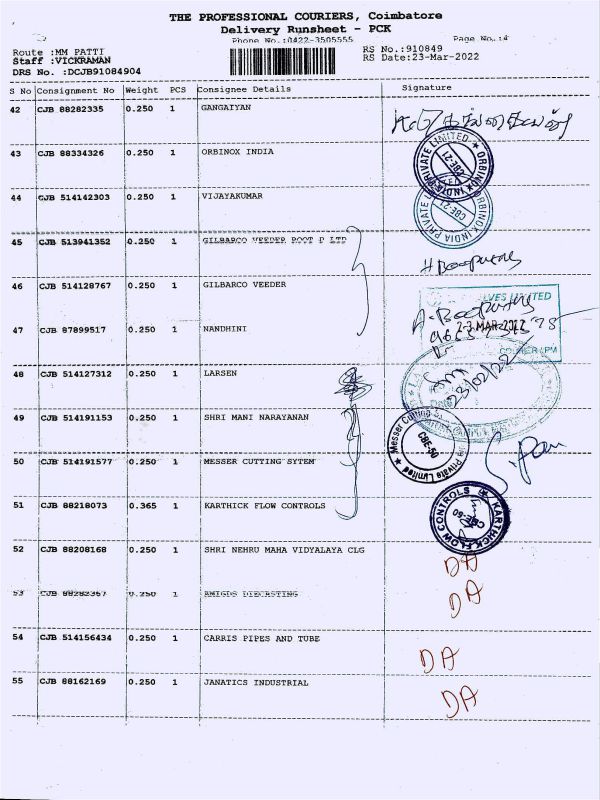 THE PROFESSIONAL COURIERS, Coimbatore
Delivery Runsheet - PCK
Phone No.:0422-3505555
Page No.:4
Route :MM PATTI
Staff :VICKRAMAN
DRS No. :DCJB91084904
RS No.:910849
RS Date:23-Mar-2022
S No Consignment No Weight PCS Consignee Details Signature
42 CJB 88282335 0.250 1 GANGAIYAN
43 CJB 88334326 0.250 1 ORBINOX INDIA
ORBINOX INDIA PRIVATE LIMITED
CBE-21
44 CJB 514142303 0.250 1 VIJAYAKUMAR
ORBINOX INDIA PRIVATE LIMITED
CBE-21
45 CJB 513941352 0.250 1 GILBARCO VEEDER ROOT P LTD
46 CJB 514128767 0.250 1 GILBARCO VEEDER
VALVES LIMITED
23 MAR 2022
47 CJB 87899517 0.250 1 NANDHINI
48 CJB 514127312 0.250 1 LARSEN
23/02/22
49 CJB 514191153 0.250 1 SHRI MANI NARAYANAN
50 CJB 514191577 0.250 1 MESSER CUTTING SYTEM
Messer Cutting Private Limited
CBE-50
51 CJB 88218073 0.365 1 KARTHICK FLOW CONTROLS
KARTHICK FLOW CONTROLS
CBE-50
52 CJB 88208168 0.250 1 SHRI NEHRU MAHA VIDYALAYA CLG DA
53 CJB 88282367 0.250 1 AMIGDS DIECASTING DA
54 CJB 514156434 0.250 1 CARRIS PIPES AND TUBE DA
55 CJB 88162169 0.250 1 JANATICS INDUSTRIAL DA